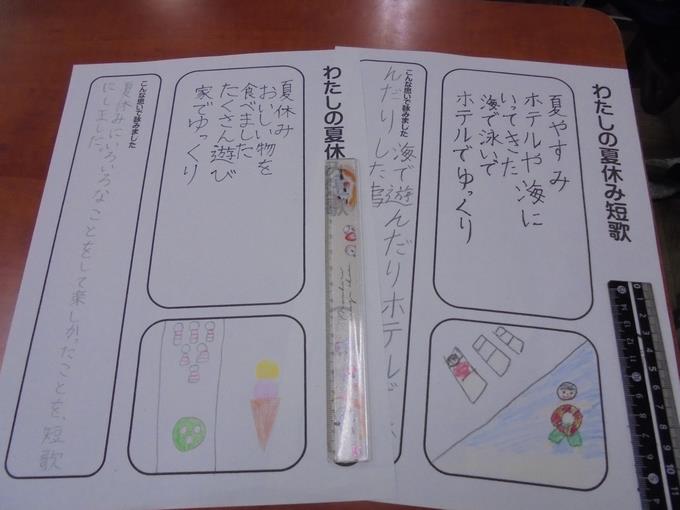 わたしの夏休み短歌
夏やすみ
ホテルや海に
いってきた
海で泳いで
ホテルでゆっくり
こんな思いで詠みました
海で遊んだりホテルで
んだりした事
わたしの夏休み
夏休み
おいしい物を
食べました
たくさん遊び
家でゆっくり
こんな思いで詠みました
夏休みにいろいろなことをして楽しかったことを、短歌
にしました。
0 1 2 3 4 5 6 7 8 9 10 11